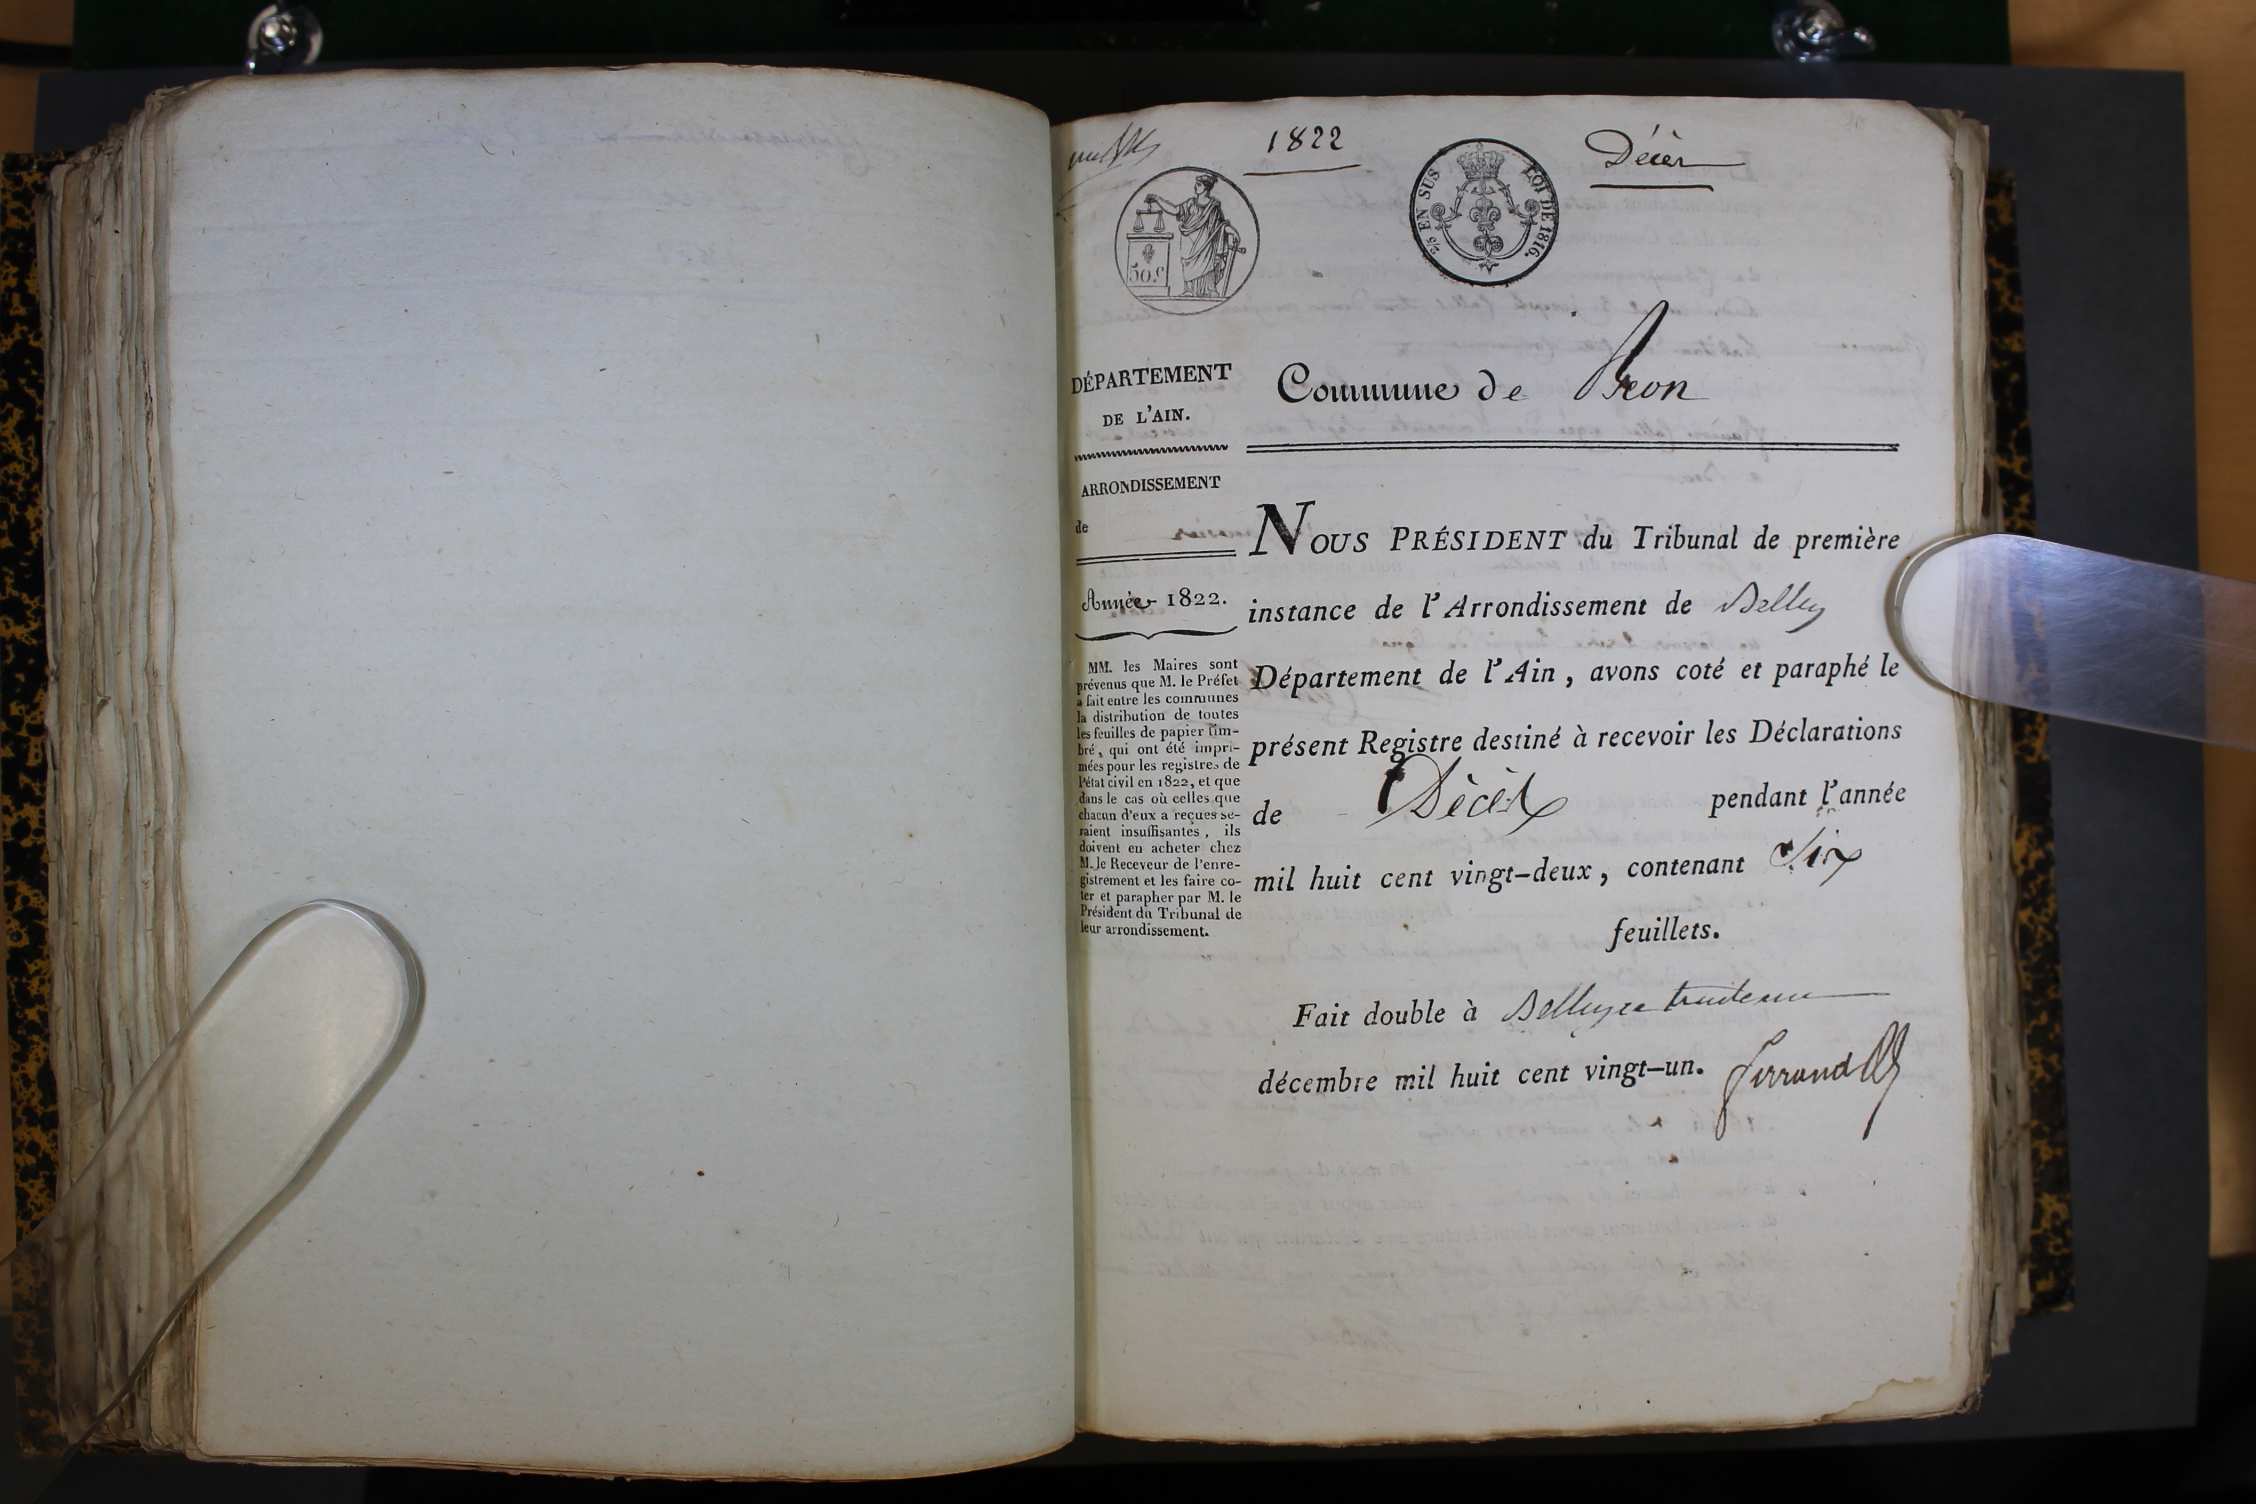 1822
Décès
50 c.
2/5 EN SUS LOI DE 1816.
DÉPARTEMENT
DE L'AIN.
ARRONDISSEMENT
de
Année 1822.
MM. les Maires sont
prévenus que M. le Préfet
a fait entre les communes
la distribution de toutes
les feuilles de papier tim-
bré, qui ont été impri-
mées pour les registres de
l'état civil en 1822, et que
dans le cas où celles que
chacun d'eux a reçues se-
raient insuffisantes, ils
doivent en acheter chez
M. le Receveur de l'enre-
gistrement et les faire co-
ter et parapher par M. le
Président du Tribunal de
leur arrondissement.
Commune de Béon
NOUS PRÉSIDENT du Tribunal de première
instance de l'Arrondissement de Belley
Département de l'Ain, avons coté et paraphé le
présent Registre destiné à recevoir les Déclarations
de Décès pendant l'année
mil huit cent vingt-deux, contenant Six
feuillets.
Fait double à Belley ce trente un
décembre mil huit cent vingt-un. Ferrand